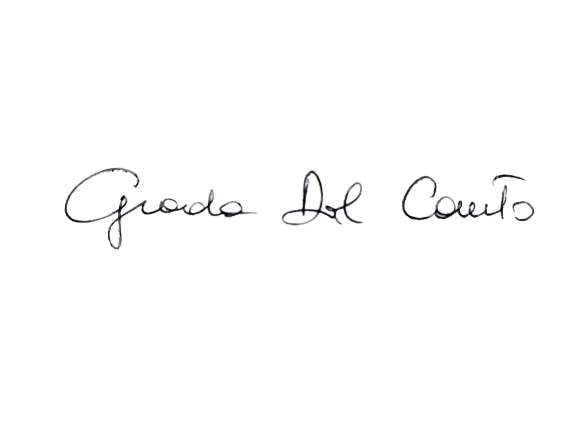 Giada Del Canto